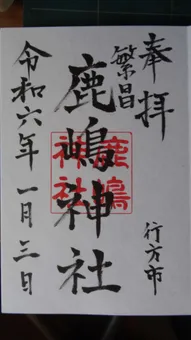 奉拝
繁昌
鹿嶋神社
鹿嶋神社
行方市
令和六年一月三日